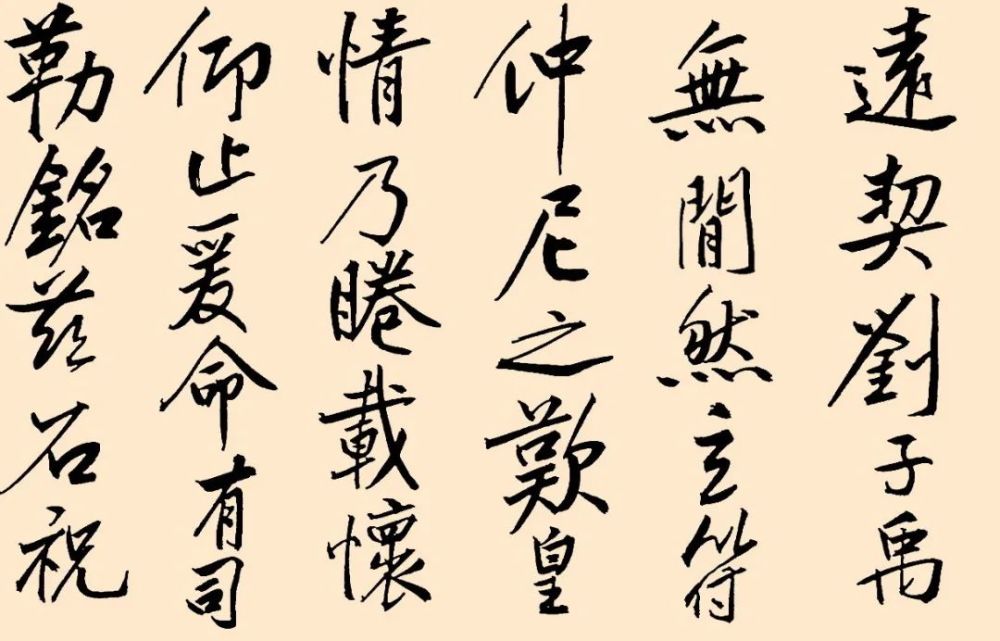 遠契劉子禹
無閒然玄符
仲尼之歎皇
情乃睠載懷
仰止爰命有司
勒銘茲石祝